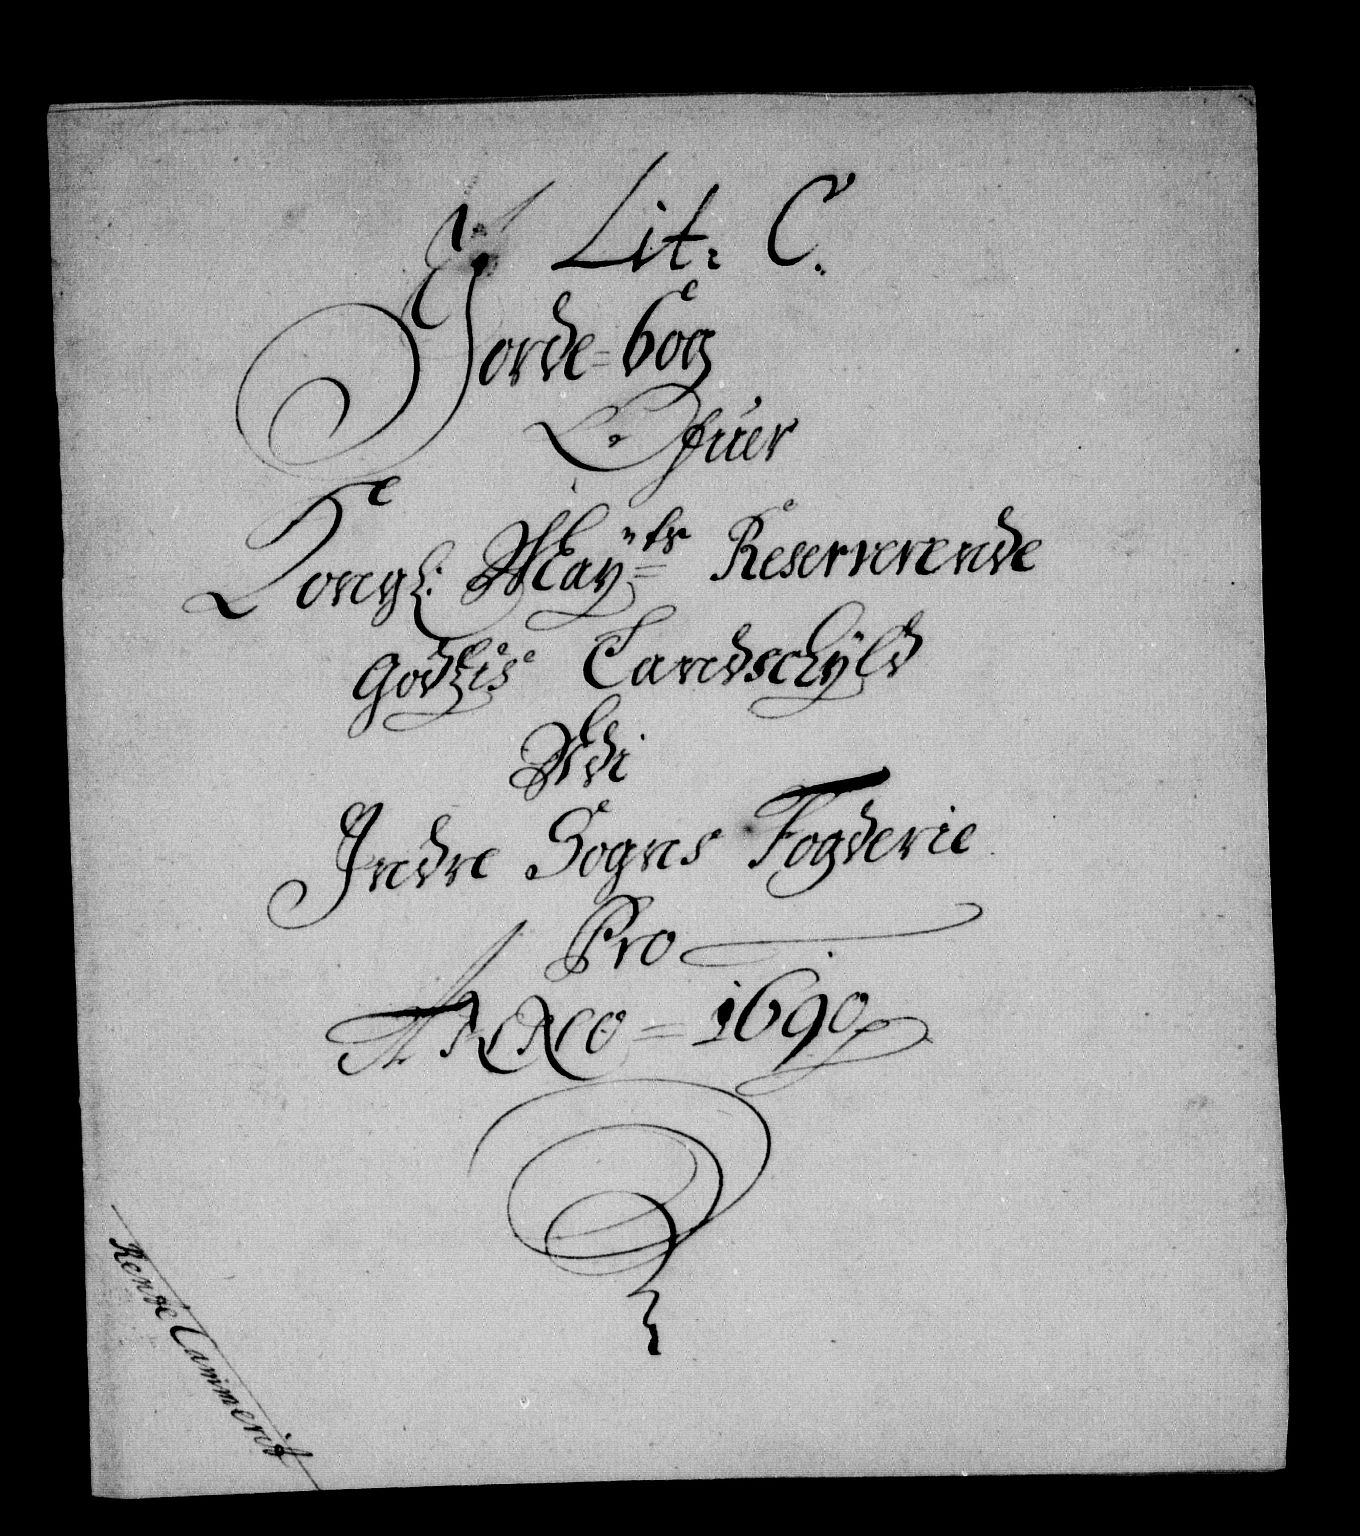 Lit: C.
Jorde=bog
Ofuer
Kongl: Maÿ:ts Reserverende
Godtzis Landschÿld
Udi
Indre Sogns Fogderie
Pro
ANNO = 1690
Rente Cammerit